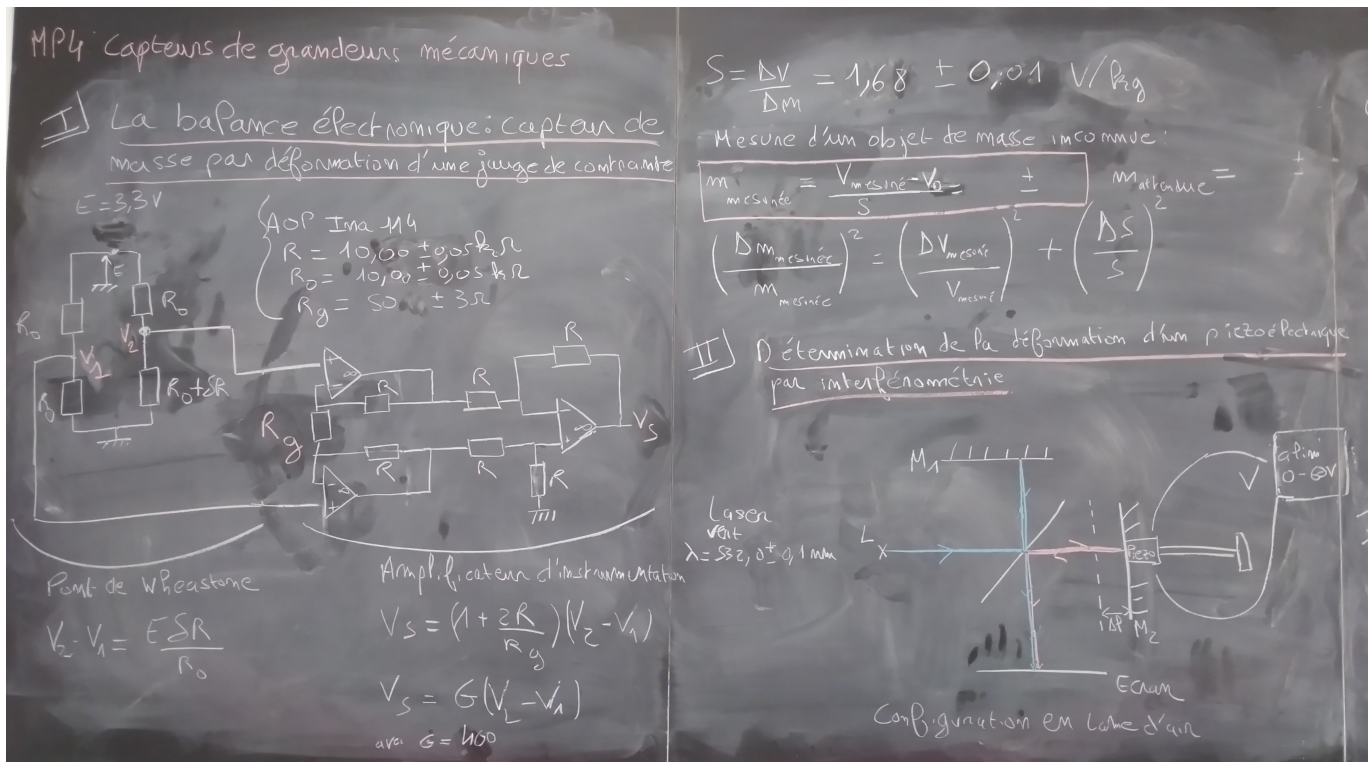 MP4 Capteurs de grandeurs mécaniques
I) La balance électronique : capteur de
masse par déformation d'une jauge de contrainte
E = 3,3V
AOP Ina 114
R = 10,00 ± 0,05 kΩ
R₀ = 10,00 ± 0,05 kΩ
R_g = 50 ± 3Ω
E
R₀
R₀
V₂
V₁
R₀
R₀+δR
R_g
R
R
R
R
R
R
V_s
∞
∞
∞
Pont de Wheastone
V₂ - V₁ = EδR / R₀
Amplificateur d'instrumentation
V_s = (1 + 2R/R_g)(V₂ - V₁)
V_s = G(V₂ - V₁)
avec G = 400
S = ΔV/Δm = 1,68 ± 0,01 V/kg
Mesure d'un objet de masse inconnue :
m mesurée = (V mesuré - V₀)/S ± m attendue = ±
(Δm mesurée / m mesurée)² = (ΔV mesuré / V mesuré)² + (ΔS/S)²
II) Détermination de la déformation d'un piezoélectrique
par interférométrie
M₁
alim
V
Laser
vert
λ = 532,0 ± 0,1 nm
L
Piezo
Δl
M₂
Ecran
Configuration en lame d'air